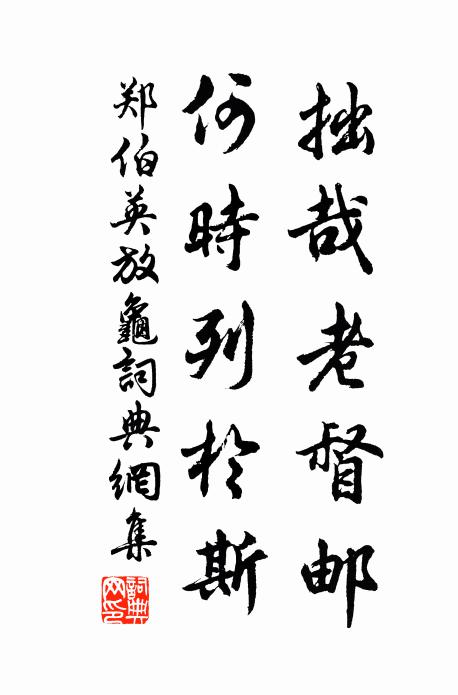 拙哉老督邮
何時列於斯
郑伯英放龜詞典網集
詞典网印